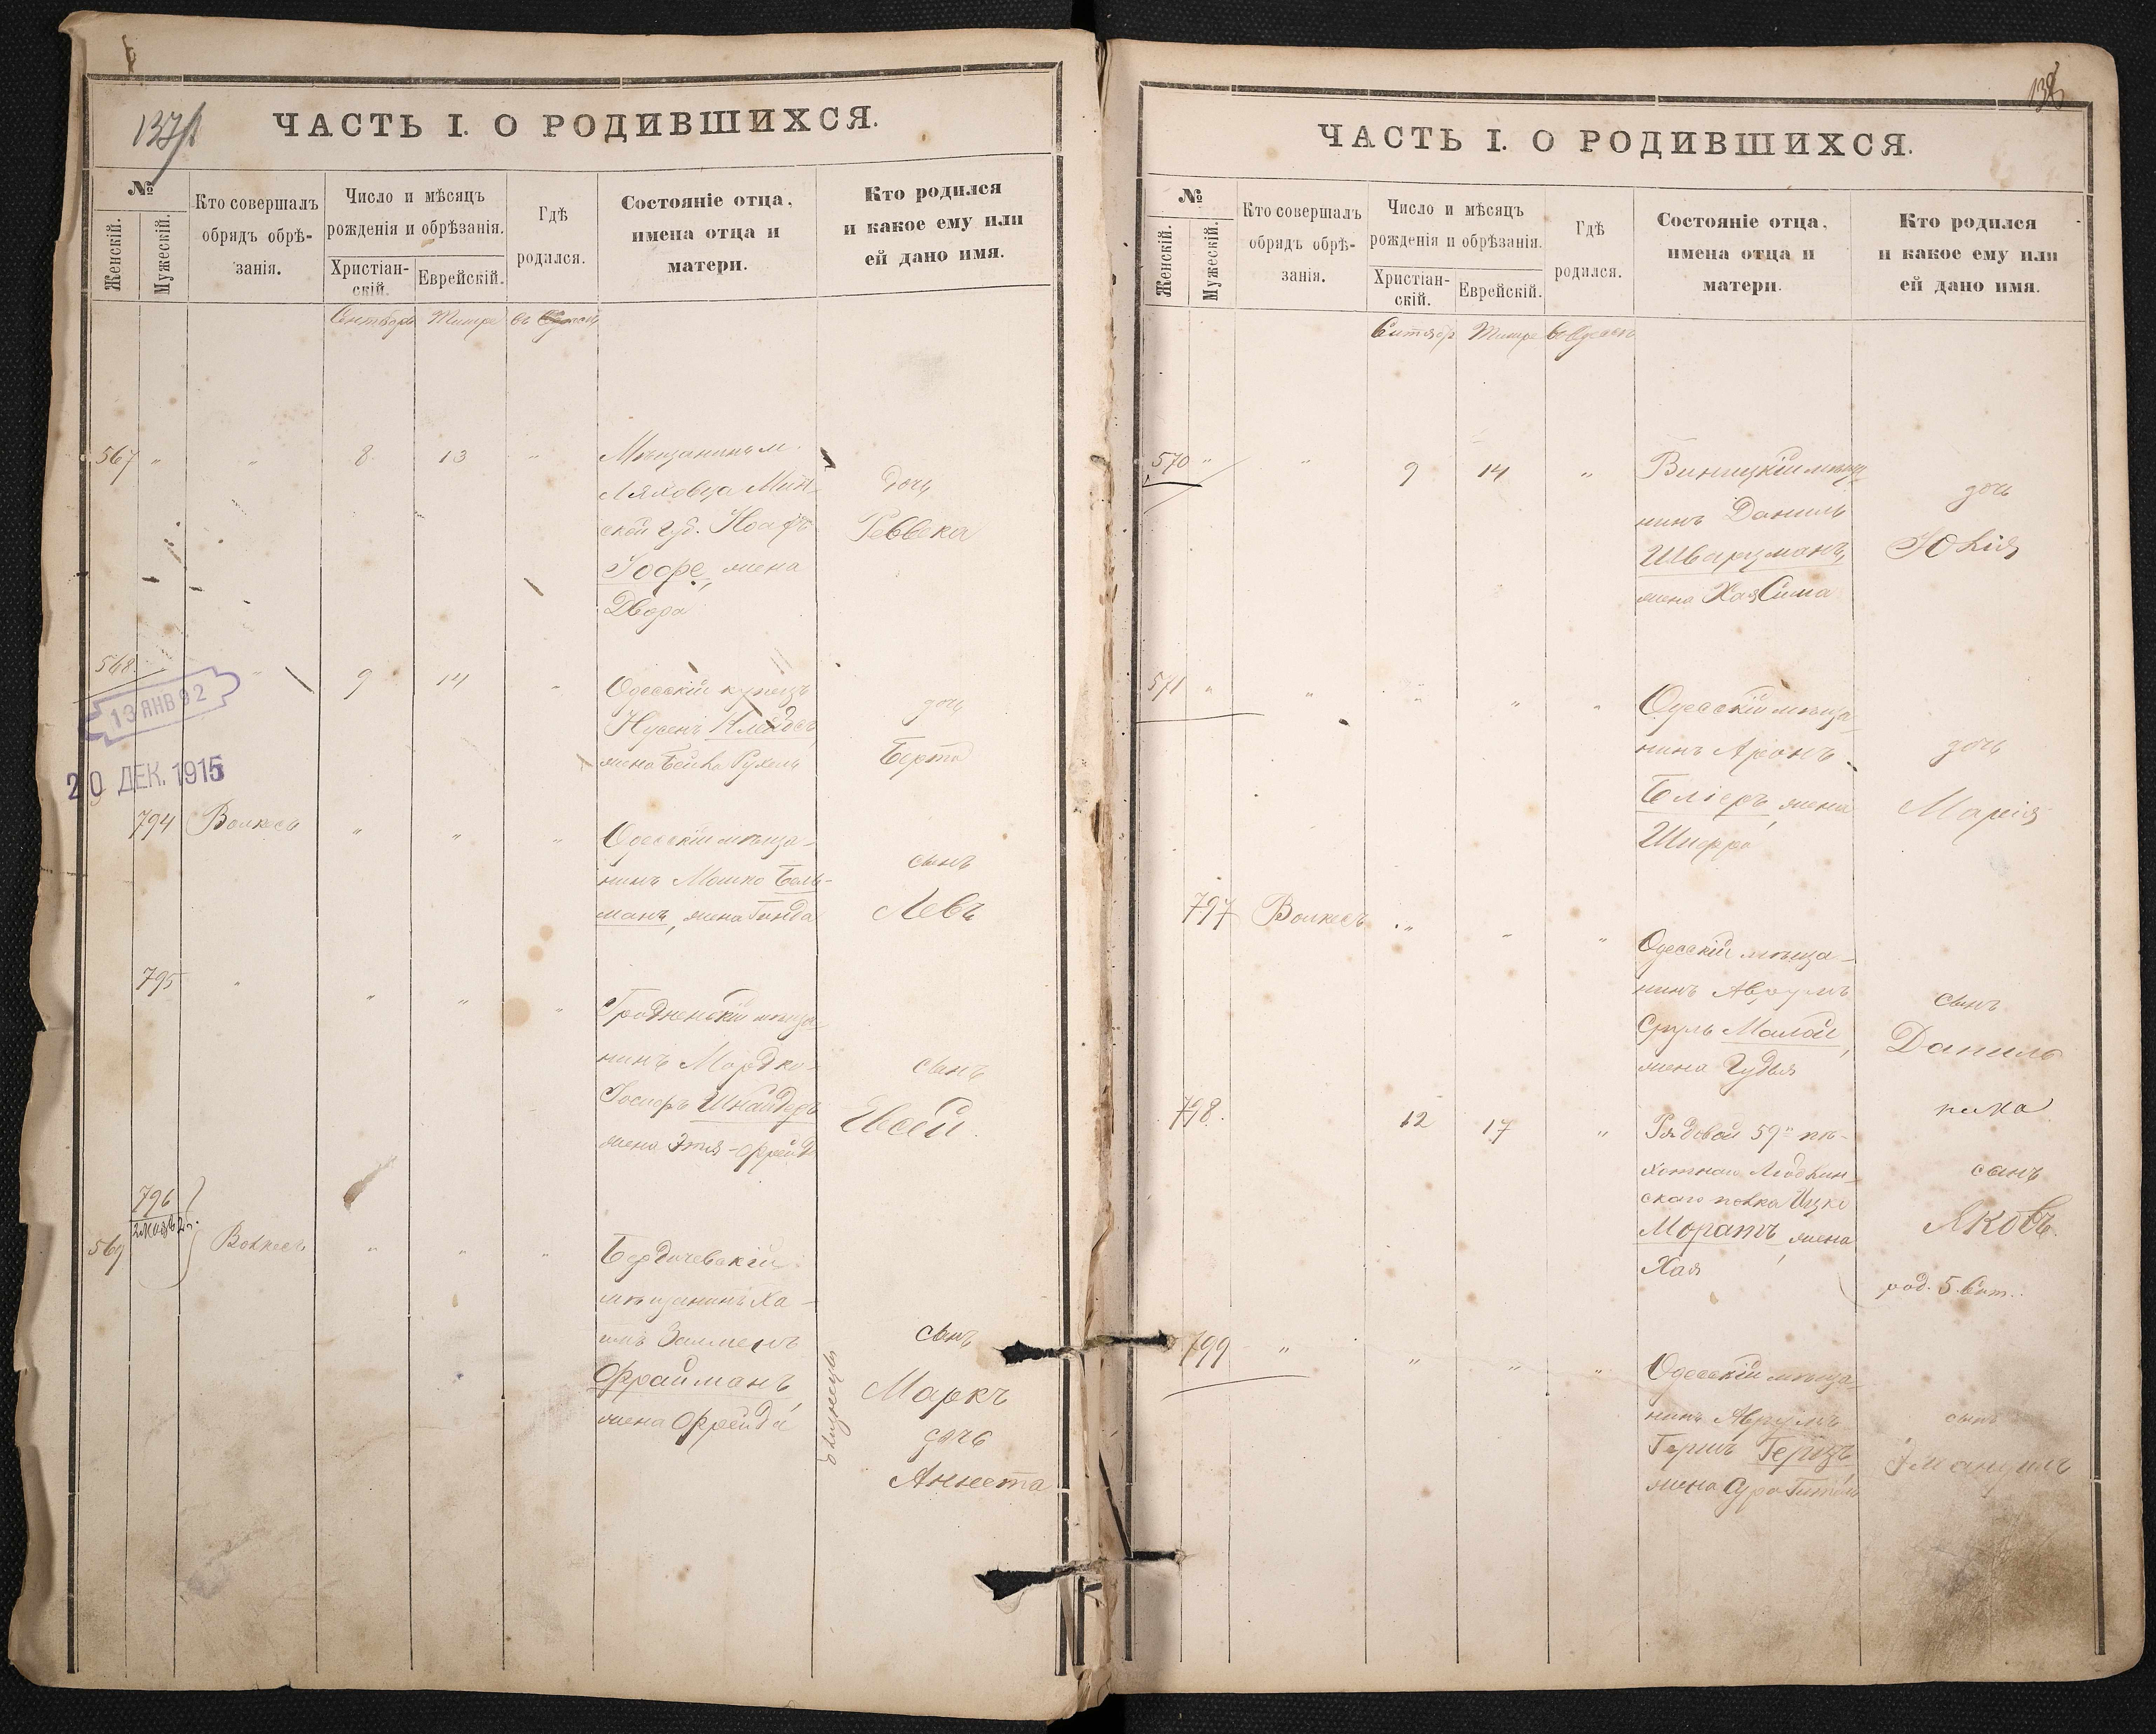 137
ЧАСТЬ I. О РОДИВШИХСЯ.
№
Женскій.
Мужескій.
Кто совершалъ
обрядъ обрѣ-
занія.
Число и мѣсяцъ
рожденія и обрѣзанія.
Христіан-
скій.
Еврейскій.
Гдѣ
родился.
Состояніе отца,
имена отца и
матери.
Кто родился
и какое ему или
ей дано имя.
Сентябрь Тишре въ
567 " " 8 13 "
Мѣщанинъ м.
Ляховца Мин-
ской губ.
Іоффе, жена
Двора
дочь
Реввека
568 " 9 14 "
Одесскій купецъ
Нусенъ
жена Бейла Рухель
дочь
Берта
13 ЯНВ 92
20 ДЕК. 1915
794 " " "
Одесскій мѣща-
нинъ Мошко Бель-
манъ, жена Гинда
сынъ
Левъ
795 " " " "
Гродненскій мѣща-
нинъ Мордко-
Іосифъ Шнайдеръ
жена Этля-Фрейда
сынъ
Евсей.
796
569 " " "
Бердичевскій
мѣщанинъ Ха-
имъ Залменъ
Фрайманъ,
жена Фрейда
близнецы
сынъ
Маркъ
дочь
Аннета
138
ЧАСТЬ I. О РОДИВШИХСЯ.
№
Женскій.
Мужескій.
Кто совершалъ
обрядъ обрѣ-
занія.
Число и мѣсяцъ
рожденія и обрѣзанія.
Христіан-
скій.
Еврейскій.
Гдѣ
родился.
Состояніе отца,
имена отца и
матери.
Кто родился
и какое ему или
ей дано имя.
Тишре въ Одессѣ
570 " " 9 14 "
Виницкій мѣща-
нинъ Даниль
Шварцманъ,
жена Хая Сима
дочь
Юлія
571 " " " " "
Одесскій мѣща-
нинъ Аронъ
жена
Шифра
дочь
Марія
797 " " "
Одесскій мѣща-
нинъ Аврумъ
Сруль Малай,
жена Гудля
сынъ
Данило
798. 12 17 "
Рядовой 59го пѣ-
хотнаго Люблин-
скаго полка Ицко
Моратъ, жена
Хая
сынъ
Яковъ.
род. 5 Сент.
799 " " " "
Одесскій мѣща-
нинъ Аврумъ
Гершъ Герцъ,
жена Сура Гитель
сынъ